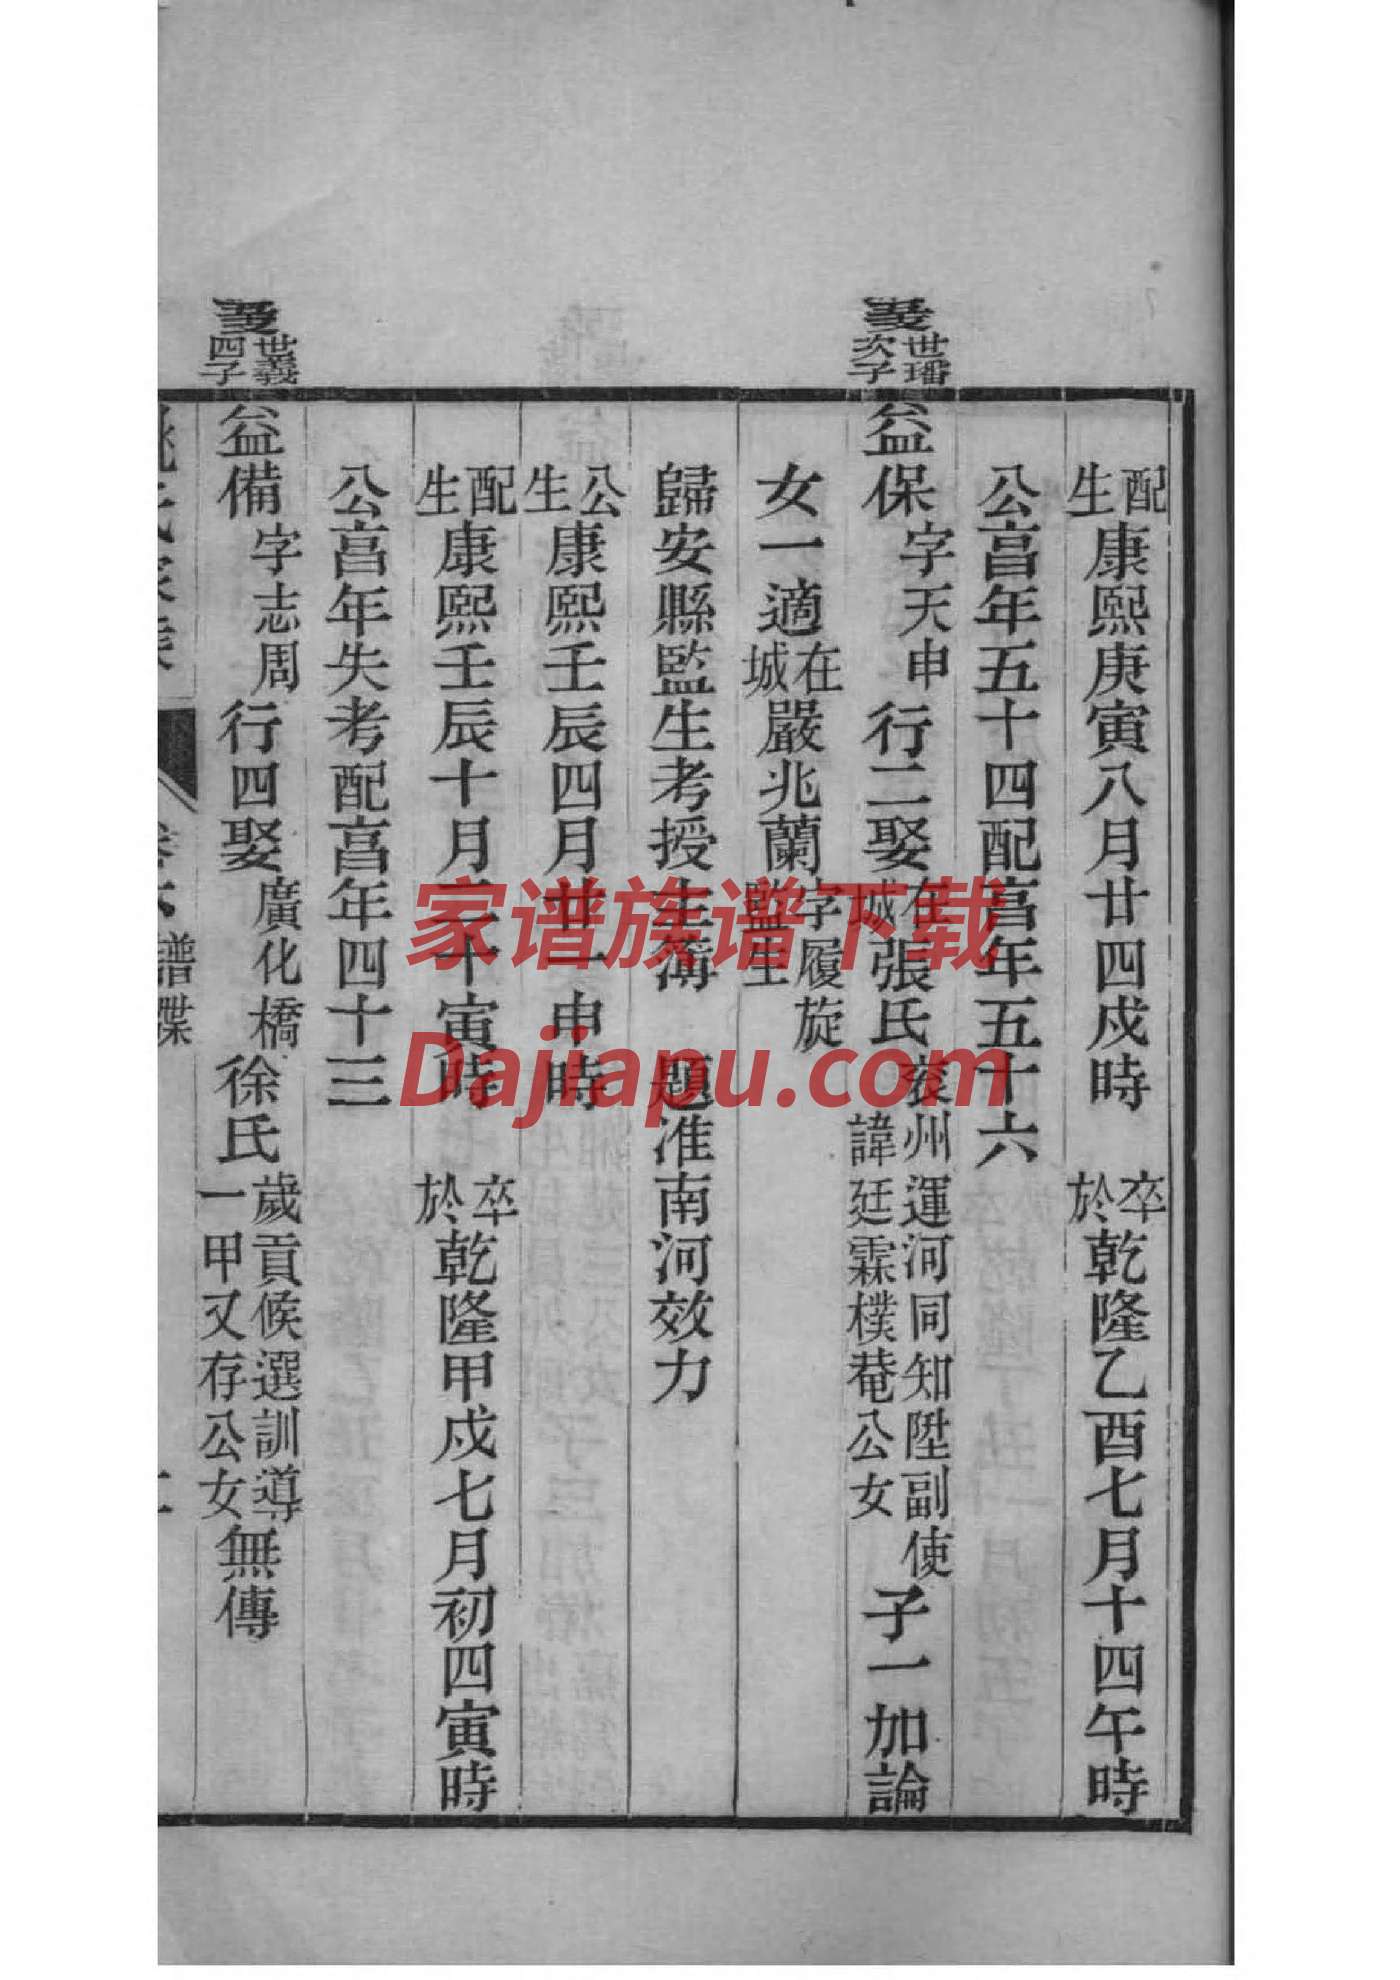 配生康熙庚寅八月廿四戌時 卒於乾隆乙酉七月十四午時
公亯年五十四配亯年五十六
世璠次子
益保字天申行二娶在城張氏兖州運河同知陞副使諱廷霖樸菴公女子一加論
女一適在城嚴兆蘭字履旋監生
歸安縣監生考授主簿 題淮南河效力
公生康熙壬辰四月廿一申時
配生康熙壬辰十月二十寅時 卒於乾隆甲戌七月初四寅時
公亯年失考配亯年四十三
世義四子
益備字志周行四娶廣化橋徐氏歲貢候選訓導一甲又存公女無傳
譜牒
家谱族谱下载
Dajiapu.com